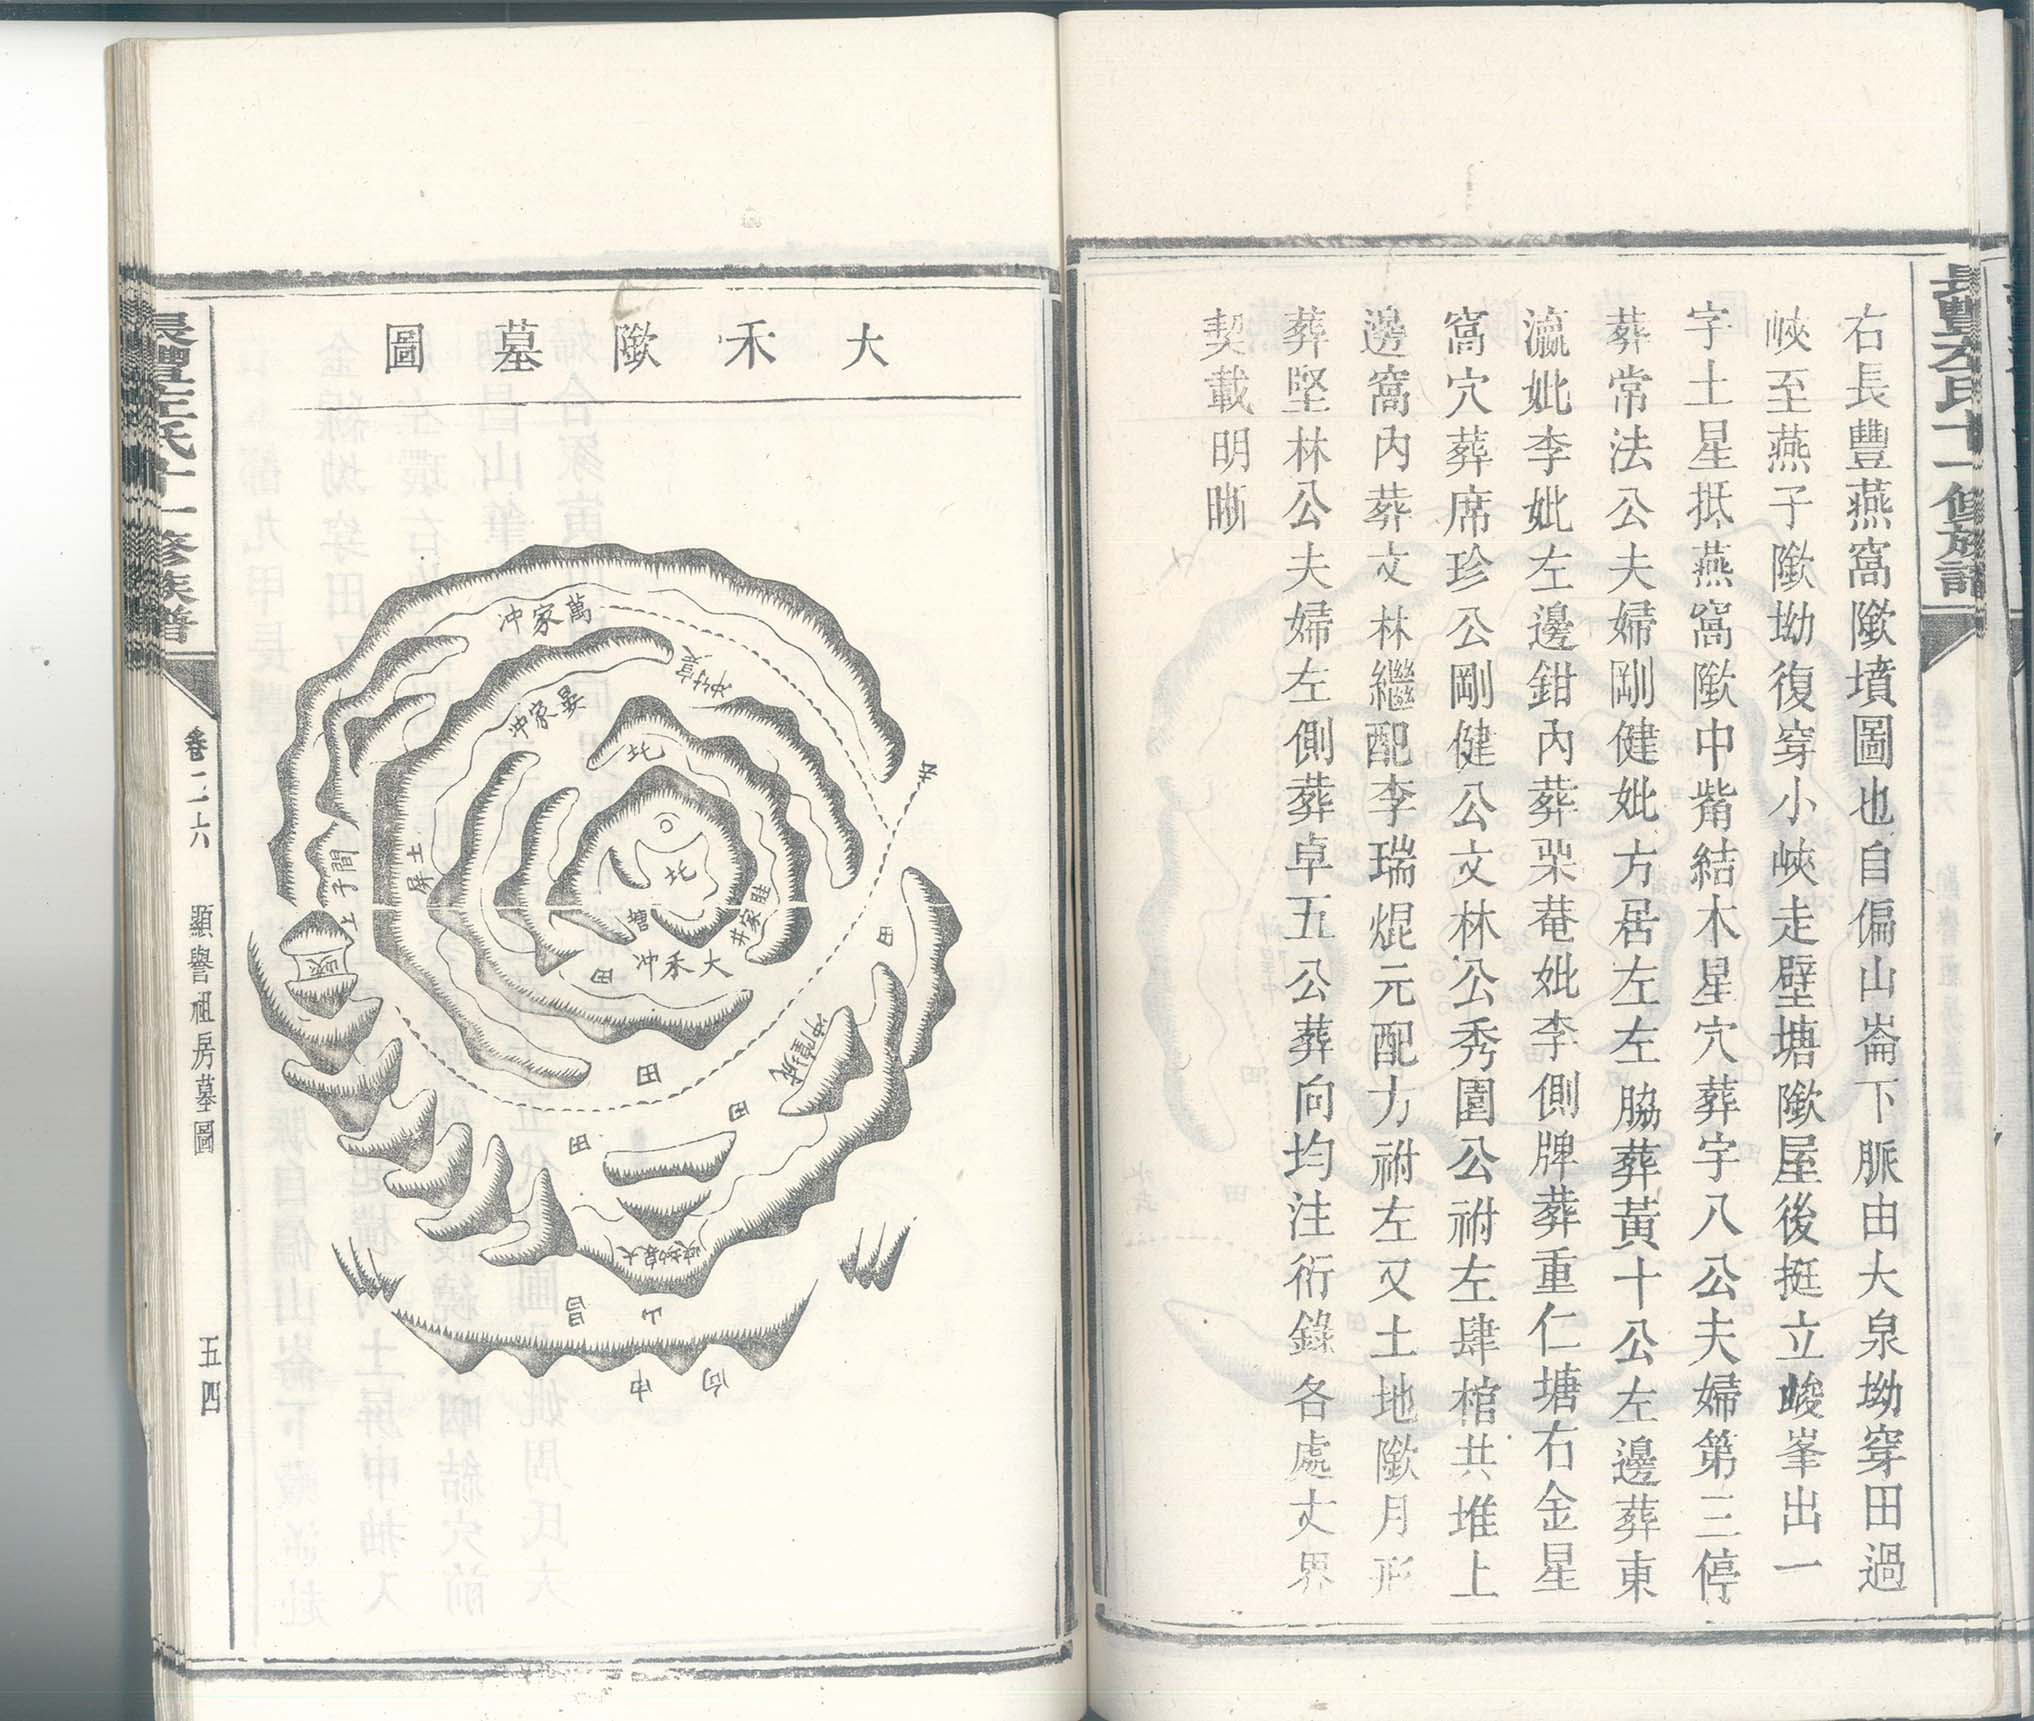 長豐左氏十一修族譜
右長豐燕窩隞墳圖也自偏山崙下脈由大泉坳穿田過
峽至燕子隞坳復穿小峽走壁塘隞屋後挺立峻峯出一
字土星抵燕窩隞中觜結木星穴葬宇八公夫婦第三停
葬常法公夫婦剛健妣方居左左脇葬黃十公左邊葬東
瀛妣李妣左邊鉗內葬菴妣李側牌葬重仁塘右金星
窩穴葬席珍公剛健公文林公秀園公祔左肆棺共堆上
邊窩內葬文林繼配李瑞焜元配力祔左又土地隞月形
葬堅林公夫婦左側葬卓五公葬向均注衍錄各處丈界
契載明晰
大禾隞墓圖
萬家冲
冲家
冲竹
北
土屏
間子上
峽
北
塘
井家
大禾冲
田
田
田
田
田
田
山
向
中
長豐左氏十一修族譜
卷二六
顯譽祖房墓圖
五四